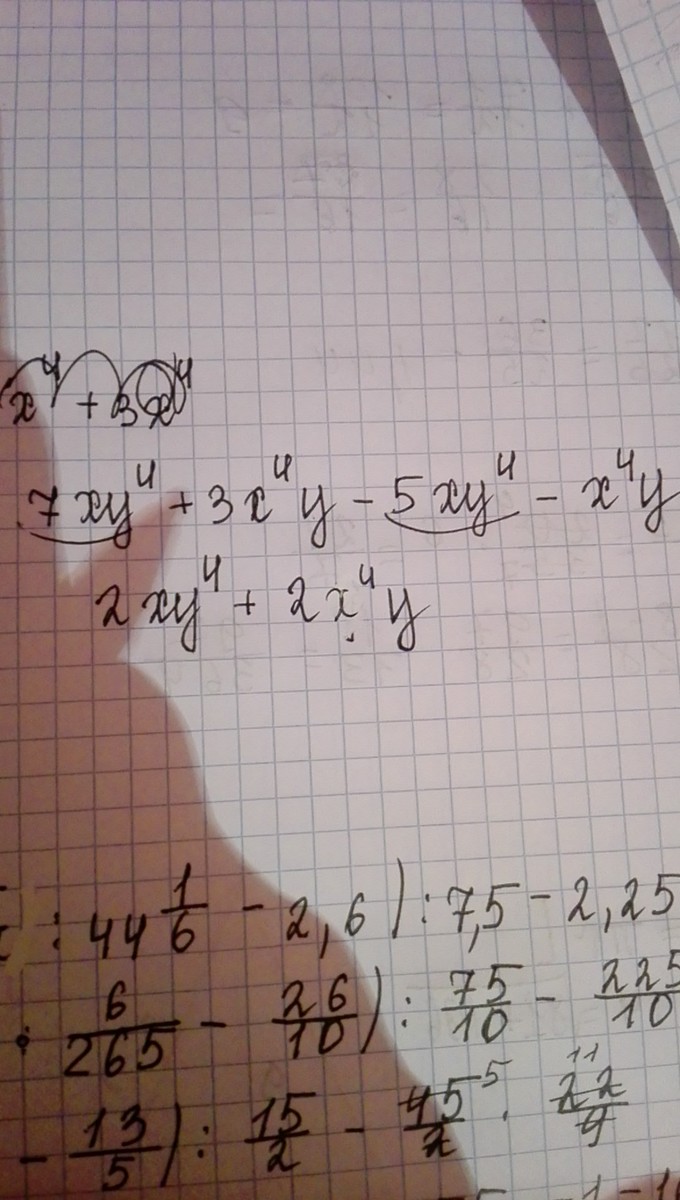 x⁴ + 3x⁴
7xy⁴ + 3x⁴y - 5xy⁴ - x⁴y
2xy⁴ + 2x⁴y
: 44 1/6 - 2,6) : 7,5 - 2,25
· 6/265 - 26/10) : 75/10 - 225/10
- 13/5) : 15/2 - 45/2 5 · 11 22/9